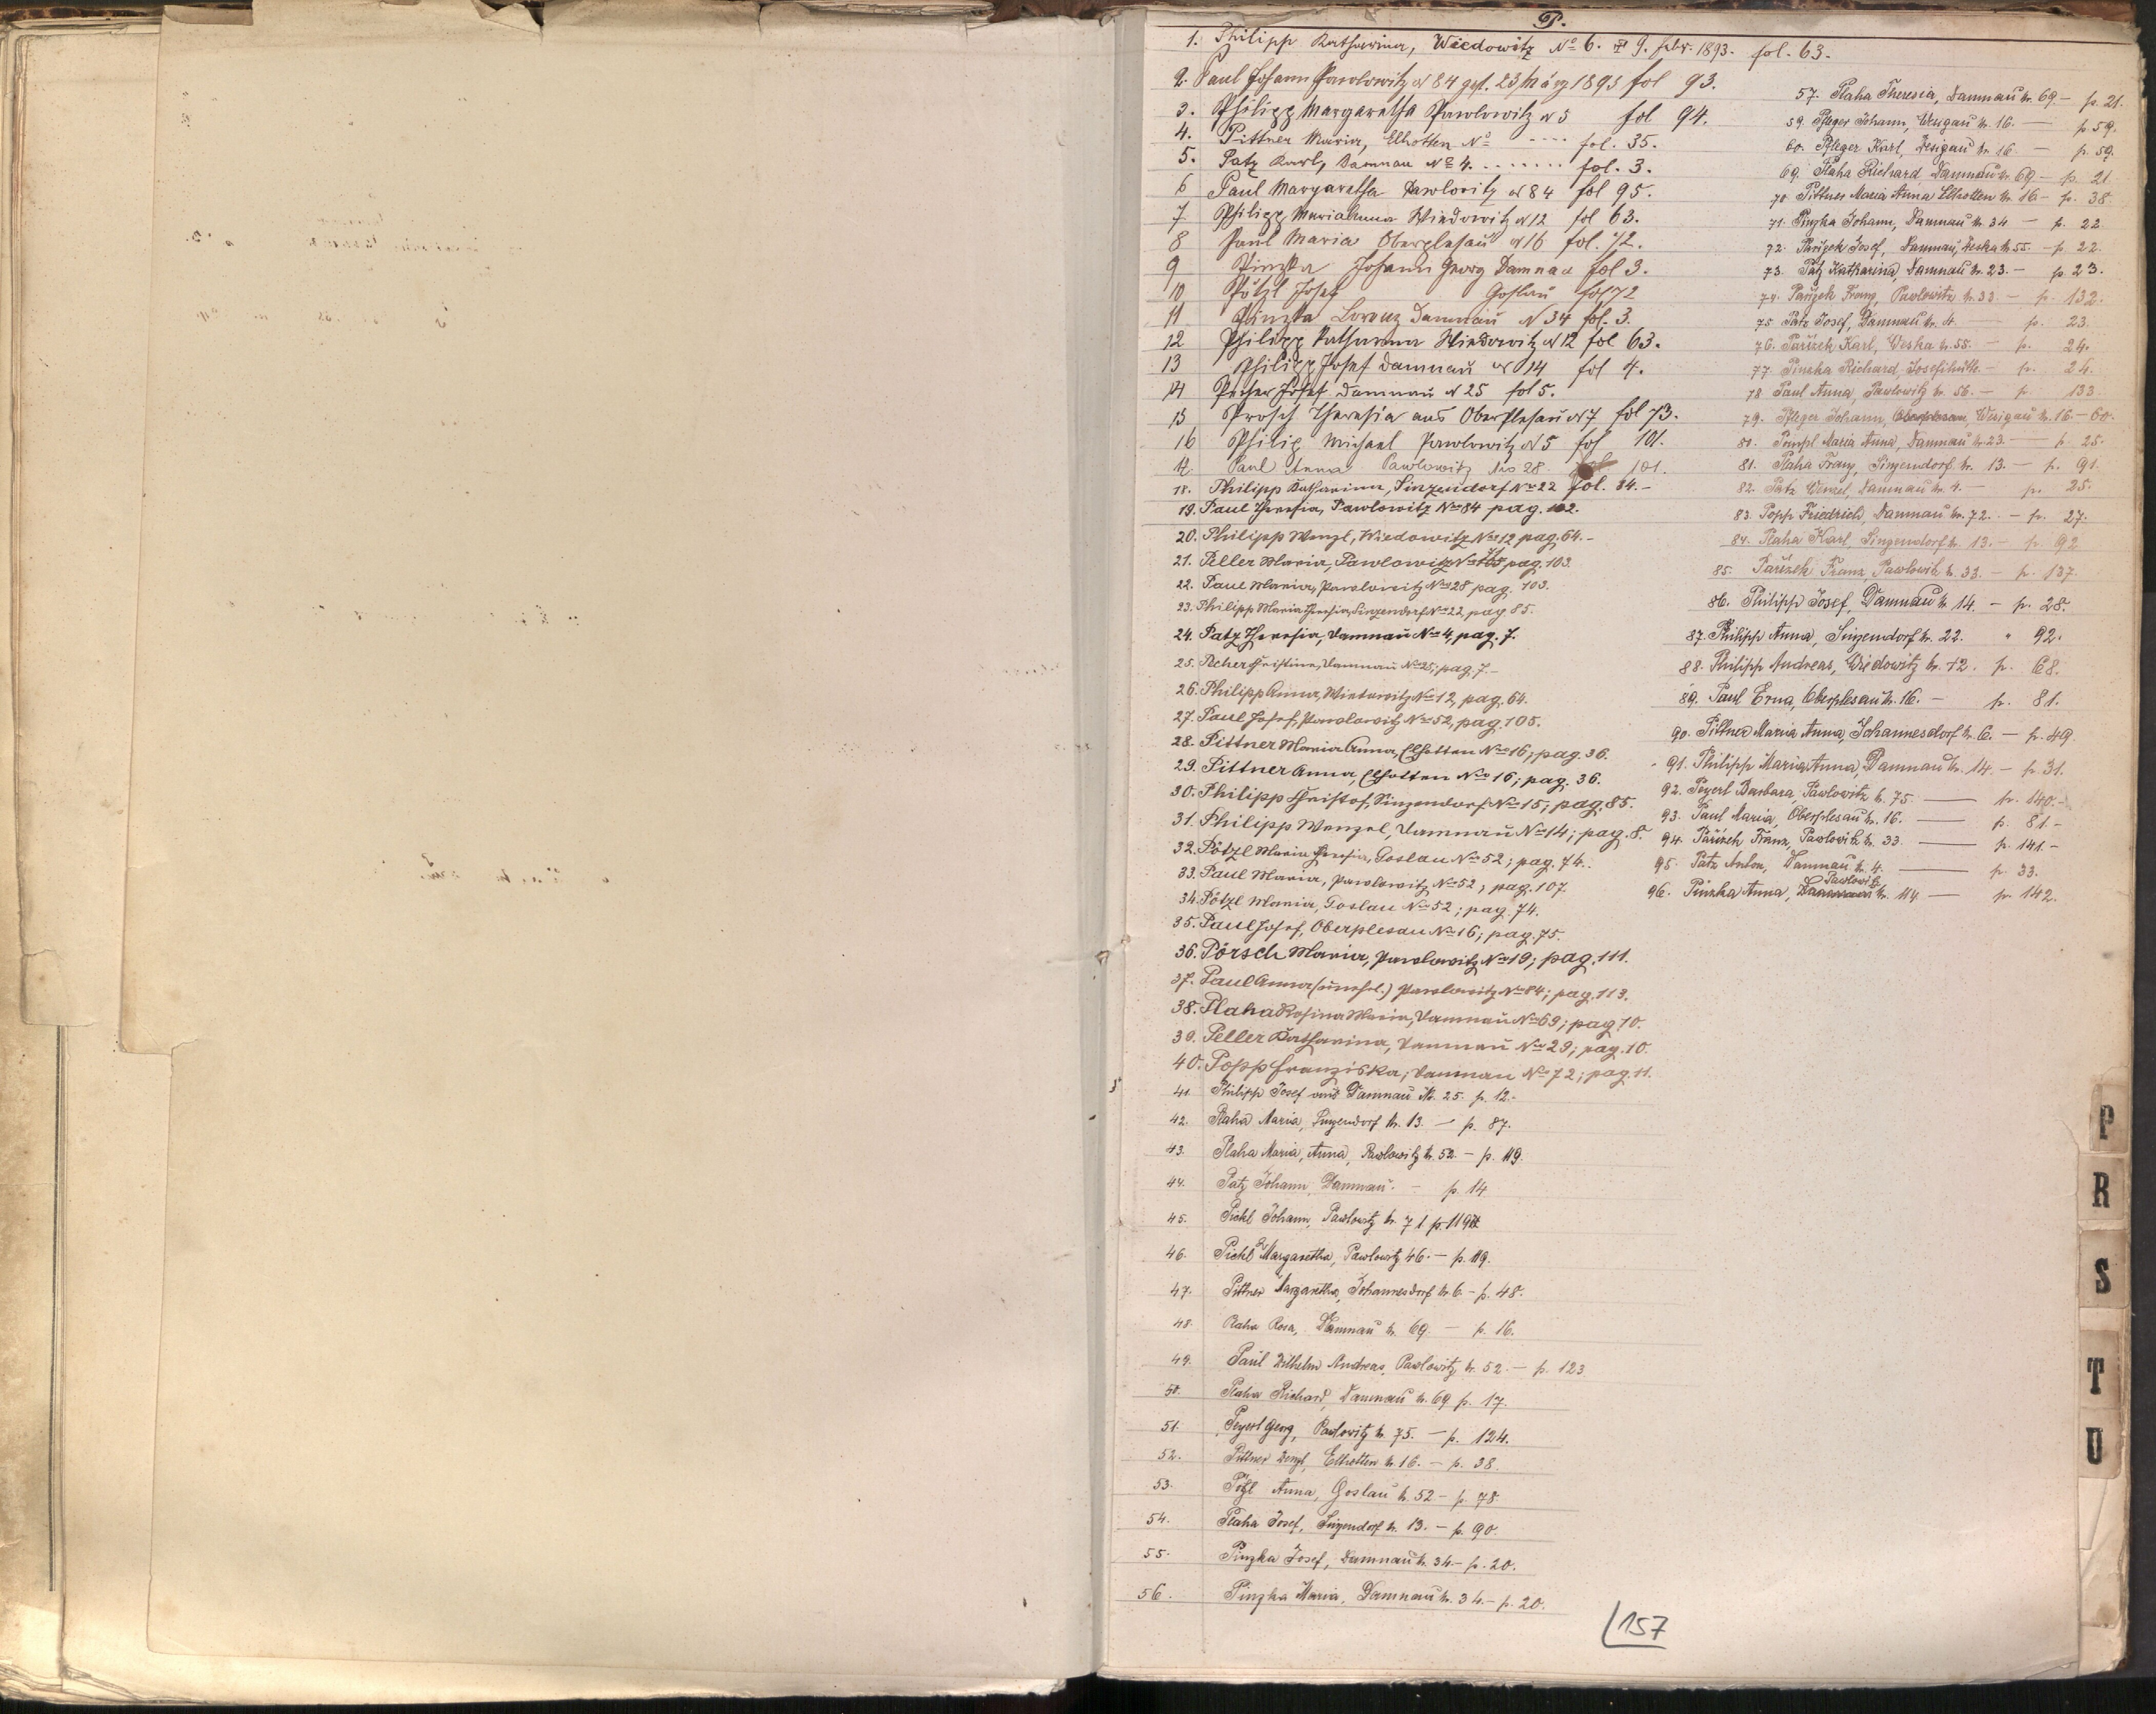 P.
1. Philipp Katharina, Wiedowitz No 6. 9. febr. 1893. fol. 63.
2. Paul Johann Pawlowitz N 84 gest. 23 März 1893 fol 93.
3. Philipp Margaretha Pawlowitz N 5 fol 94.
4. Pittner Maria, Elhotten No ---- fol. 35.
5. Patz Karl, Damnau No 4. ...... fol. 3.
6 Paul Margaretha Pawlowitz N 84 fol 95.
7 Philipp Maria Anna Wiedowitz N 12 fol 63.
8 Paul Maria Oberplesaŭ N 16 fol. 72.
9 Pinzka Johann Georg Damnau fol 3.
10 Pötzl Josef Goslau fol 72
11 Pinzka Lorenz Damnaŭ N 34 fol. 3.
12 Philipp Katharina Wiedowitz N 12 fol 63.
13 Philipp Josef Damnaŭ N 14 fol 4.
14 Pecher Josef Damnaŭ N 25 fol 5.
15 Prosch Theresia aus Oberplesaŭ N 7 fol 73.
16 Philip Michael Pawlowitz N 5 fol 101.
17. Paul Anna Pawlowitz Nro 28. fol 101.
18. Philipp Katharina, Sinzendorf No 22 fol. 84.-
19. Paul Theresia, Pawlowitz No 84 pag. 102.
20. Philipp Wenzl, Wiedowitz No 12 pag. 64.-
21. Peller Maria, Pawlowitz No pag. 103.
22. Paul Maria, Pawlowitz No 28 pag. 103.
23. Philipp Maria Theresia, Sinzendorf No 22, pag 85.
24. Patz Theresia, Damnaŭ No 4, pag. 7.
25. Pecher Christina, Damnaŭ No 25, pag. 7.-
26. Philipp Anna, Wiedowitz No 12, pag. 64.
27. Paul Josef, Pawlowitz No 52, pag. 105.
28. Pittner Maria Anna, Elhotten No 16; pag. 36.
29. Pittner Anna, Elhotten No 16; pag. 36.
30. Philipp Christof, Sinzendorf No 15; pag. 85.
31. Philipp Wenzel, Damnaŭ No 14; pag. 8.
32. Pötzl Maria Theresia, Goslau No 52; pag. 74.
33. Paul Maria, Pawlowitz No 52; pag. 107.
34. Pötzl Maria, Goslau No 52; pag. 74.
35. Paul Josef, Oberplesau No 16; pag. 75.
36. Pörsch Maria, Pawlowitz No 19; pag. 111.
37. Paul Anna (unehel.) Pawlowitz No 84; pag. 113.
38. Plaha Rosina Maria, Damnaŭ No 69; pag 10.
39. Peller Katharina, Damnaŭ No 29; pag. 10.
40. Popp Franziska, Damnau No 72; pag. 11.
41. Philipp Josef aus Damnaŭ No. 25. p. 12.-
42. Plaha Maria, Sinzendorf N. 13. - p. 87.
43. Plaha Maria, Anna, Pawlowitz N. 52. - p. 119.
44. Patz Johann, Damnaŭ. - p. 14
45. Pickl Johann, Pawlowitz N. 71 p. 119
46. Pickl Margaretha, Pawlowitz 46. - p. 119.
47. Pittner Margaretha, Johannesdorf N. 6 - p. 48.
48. Plaha Rosa, Damnaŭ N. 69. - p. 16.
49. Paul Wilhelm Andreas, Pawlowitz N. 52. - p. 123
50. Plaha Richard, Damnaŭ N. 69 p. 17.
51. Peyerl Georg, Pawlowitz N. 75. - p. 124.
52. Pittner Wenzl, Elhotten N. 16. - p. 38.
53. Pötzl Anna, Goslaŭ N. 52 - p. 78.
54. Plaha Josef, Sinzendorf N. 13. - p. 90
55. Pinzka Josef, Damnaŭ N. 34 - p. 20.
56. Pinzka Maria, Damnaŭ N. 34. - p. 20.
57. Plaha Theresia, Damnaŭ N. 69 - p. 21.
59. Pfleger Johann, Wesigaŭ N. 16. - p. 59.
60. Pfleger Karl, Wesigaŭ N. 16 - p. 59.
69. Plaha Richard Damnaŭ N. 69 - p. 21
70. Pittner Maria Anna Elhotten N. 16 - p. 38
71. Pinzka Johann, Damnaŭ N. 34 - p. 22
72. Pařizek Josef, Damnaŭ, Weska N. 55. - p. 22.
73. Patz Katharina, Damnaŭ N. 23. - p. 23.
74. Pařizek Franz, Pawlowitz N. 33. - p. 132.
75. Patz Josef, Damnaŭ N. 4. p. 23.
76. Pařizek Karl, Weska N. 55. - p. 24.
77. Pinzka Richard, Josefihütte. - p. 24.
78 Paul Anna, Pawlowitz N. 56. - p. 133
79. Pfleger Johann, Oberplesau, Wesigaŭ N. 16. - 60.
80. Pimpl Maria Anna, Damnaŭ N. 23. - p. 25.
81. Plaha Franz, Sinzendorf N. 13. - p. 91.
82. Patz Wenzel, Damnaŭ N. 4. - p. 25.
83. Popp Friedrich, Damnaŭ N. 72. - p. 27.
84. Plaha Karl, Sinzendorf N. 13. - p. 92
85. Pařizek Franz Pawlowitz N. 33. - p. 137.
86. Philipp Josef, Damnaŭ N. 14. - p. 28.
87. Philipp Anna, Sinzendorf N. 22. " 92.
88. Philipp Andreas, Wiedowitz N. 12. p. 68.
89. Paul Erna, Oberplesaŭ N. 16. - p. 81.
90. Pittner Maria Anna, Johannesdorf N. 6. - p. 49
91. Philipp Maria Anna, Damnaŭ N. 14. - p. 31.
92. Peyerl Barbara Pawlowitz N. 75. - p. 140.-
93. Paul Maria, Oberplesaŭ N. 16. - p. 81.-
94. Pařizek Franz, Pawlowitz N. 33 - p. 141.-
95. Patz Anton, Damnaŭ N. 4. - p. 33.
96. Pinzka Anna, Damnaŭ Pawlowitz N. 114 - p. 142.
157
P
R
S
T
U